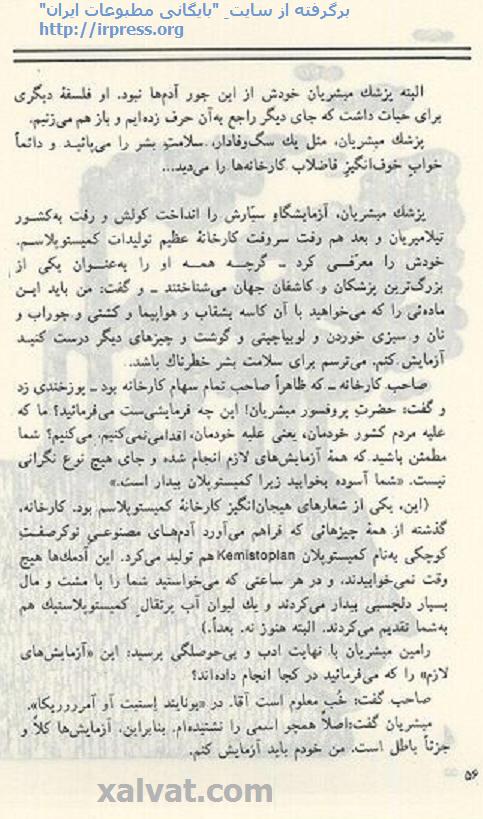 برگرفته از سایت "بایگانی مطبوعات ایران"
http://irpress.org
البته پزشك میشریان خودش از این جور آدم‌ها نبود. او فلسفهٔ دیگری
برای حیات داشت که جای دیگر راجع به‌آن حرف زده‌ایم و باز هم می‌زنیم.
پزشك میشریان، مثل یك سگ‌وفادار، سلامتِ بشر را می‌پائید و دائماً
خوابِ خوف‌انگیزِ فاضلاب کارخانه‌ها را می‌دید...
پزشك میشریان، آزمایشگاهِ سیّارش را انداخت کولش و رفت به‌کشور
تیلامیریان و بعد هم رفت سروقت کارخانهٔ عظیم تولیدات کمیستوپلاسم.
خودش را معرّفی کرد ــ گرچه همه او را به‌عنوان یکی از
بزرگ‌ترین پزشکان و کاشفان جهان می‌شناختند ــ و گفت: من باید این
ماده‌ئی را که می‌خواهید با آن کاسه بشقاب و هواپیما و کشتی و جوراب و
نان و سبزی خوردن و لوبیاچیتی و گوشت و چیزهای دیگر درست کنید
آزمایش کنم. می‌ترسم برای سلامت بشر خطرناك باشد.
صاحب کارخانه ــ که ظاهراً صاحب تمام سهام کارخانه بود ــ پوزخندی زد
و گفت: حضرت پروفسور میشریان! این چه فرمایشی‌ست می‌فرمائید؟ ما که
علیه مردم کشور خودمان، یعنی علیه خودمان، اقدامی‌نمی‌کنیم. می‌کنیم؟ شما
مطمئن باشید که همهٔ آزمایش‌های لازم انجام شده و جای هیچ نوع نگرانی
نیست. «شما آسوده بخوابید زیرا کمیستوپلان بیدار است.»
(این، یکی از شعارهای هیجان‌انگیز کارخانهٔ کمیستوپلاسم بود. کارخانه،
گذشته از همهٔ چیزهائی که فراهم می‌آورد آدم‌های مصنوعیِ نوکرصفتِ
کوچکی به‌نام کمیستوپلان Kemistoplan هم تولید می‌کرد. این آدمك‌ها هیچ
وقت نمی‌خوابیدند، و در هر ساعتی که می‌خواستید شما را با مشت و مال
بسیار دلچسبی بیدار می‌کردند و یك لیوان آب پرتقالِ کمیستوپلاستیك هم
به‌شما تقدیم می‌کردند. البته هنوز نه. بعداً.)
رامین میشریان با نهایت ادب و بی‌حوصلگی پرسید: این «آزمایش‌های
لازم» را که می‌فرمائید در کجا انجام داده‌اند؟
صاحب گفت: خُب معلوم است آقا. در «یونایتد اِستیت آو آمررریکا».
میشریان گفت:اصلاً همچو اسمی را نشنیده‌ام. بنابراین، آزمایش‌ها کلاً و
جزئاً باطل است. من خودم باید آزمایش کنم.
۵۶
xalvat.com